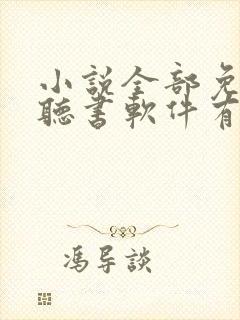 小説全部免
聽書軟件有
馮導談